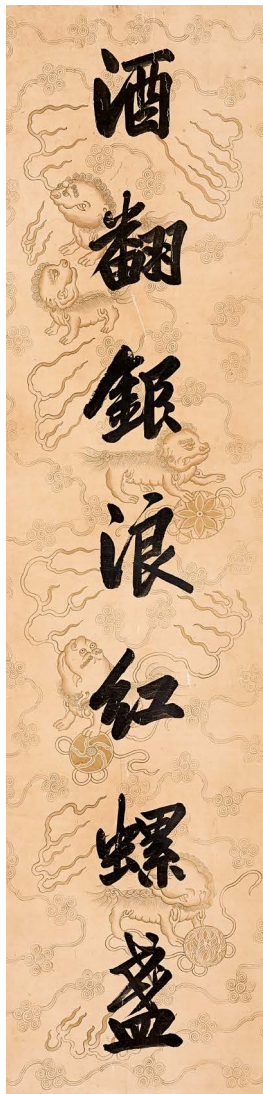 酒翻銀浪紅螺盞